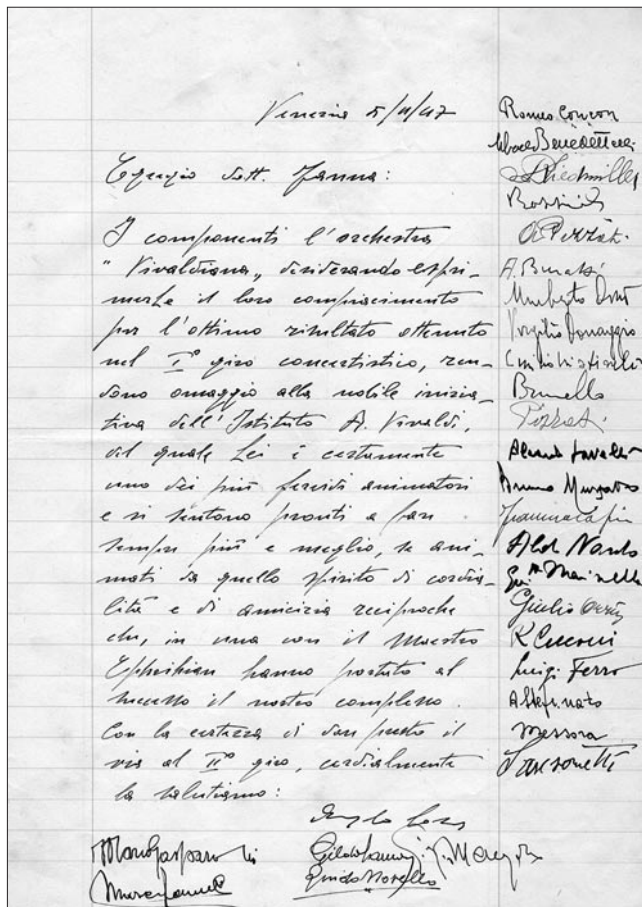 Venezia 5/11/47
Egregio dott. Fanna:
I componenti l'orchestra
"Vivaldiana" desiderando espri-
merLe il loro compiacimento
per l'ottimo risultato ottenuto
nel I° giro concertistico, ren-
dono omaggio alla nobile inizia-
tiva dell'Istituto A. Vivaldi,
del quale Lei è certamente
uno dei più fervidi animatori
e si sentono pronti a fare
sempre più e meglio, se ani-
mati da quello spirito di cordia-
lità e di amicizia reciproche
che, in una con il Maestro
Ephrikian hanno portato al
successo il nostro complesso.
Con la certezza di dar presto il
via al II° giro, cordialmente
la salutiamo:
Guido Novello
Romeo
Benedettelli
A. Burassi
Umberto
Virgilio Donaggio
Brunello
Bruno
Aldo Nardo
Giulio
Luigi Ferro
Messora
Sansonetti